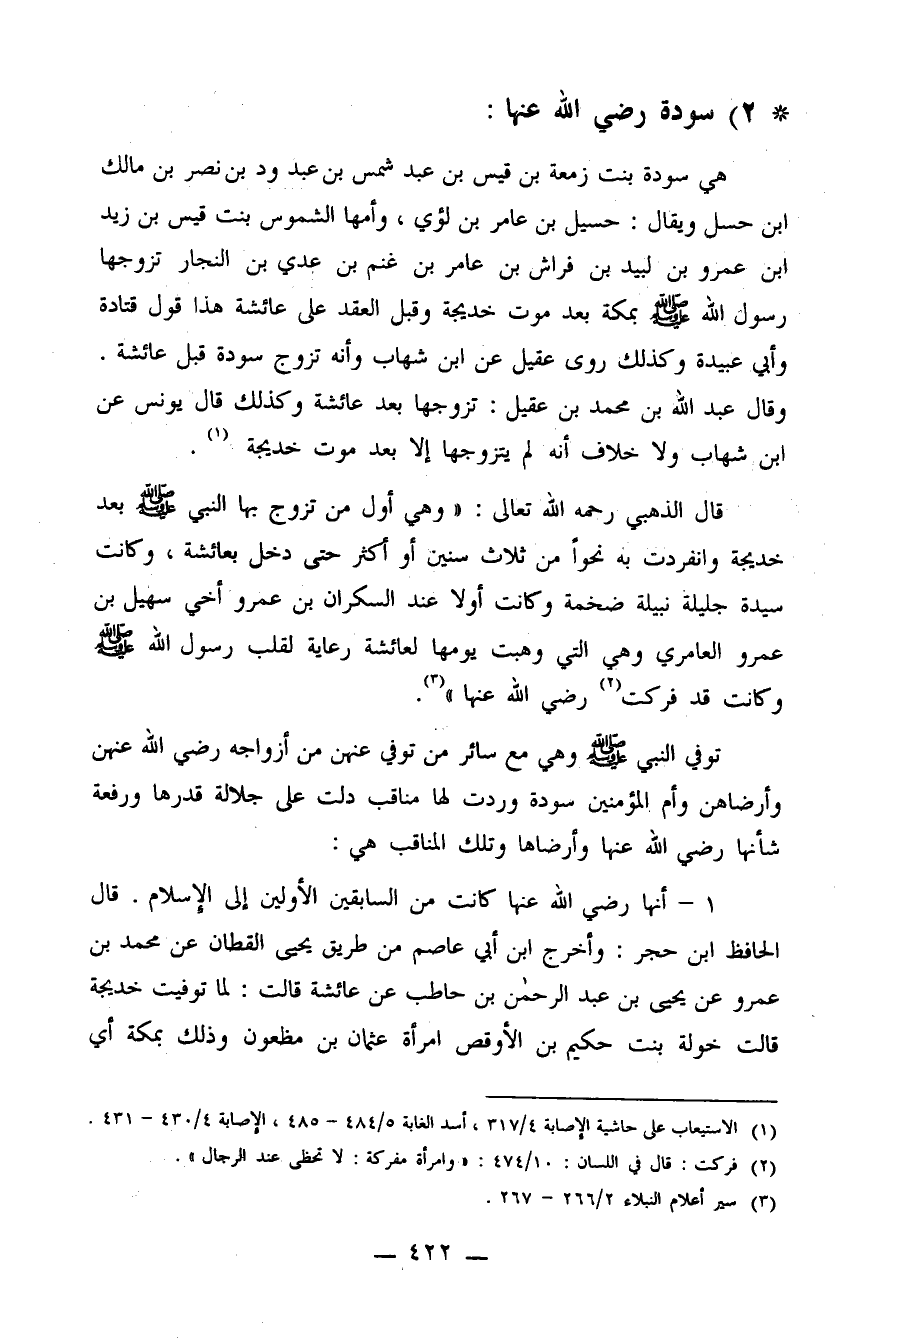 * ٢) سودة رضي الله عنها :
هي سودة بنت زمعة بن قيس بن عبد شمس بن عبد ود بن نصر بن مالك
ابن حسل ويقال : حسيل بن عامر بن لؤي ، وأمها الشموس بنت قيس بن زيد
ابن عمرو بن لبيد بن فراش بن عامر بن غنم بن عدي بن النجار تزوجها
رسول الله ﷺ بمكة بعد موت خديجة وقبل العقد على عائشة هذا قول قتادة
وأبي عبيدة وكذلك روى عقيل عن ابن شهاب وأنه تزوج سودة قبل عائشة .
وقال عبد الله بن محمد بن عقيل : تزوجها بعد عائشة وكذلك قال يونس عن
ابن شهاب ولا خلاف أنه لم يتزوجها إلا بعد موت خديجة (١) .
قال الذهبي رحمه الله تعالى : « وهي أول من تزوج بها النبي ﷺ بعد
خديجة وانفردت به نحواً من ثلاث سنين أو أكثر حتى دخل بعائشة ، وكانت
سيدة جليلة نبيلة ضخمة وكانت أولا عند السكران بن عمرو أخي سهيل بن
عمرو العامري وهي التي وهبت يومها لعائشة رعاية لقلب رسول الله ﷺ
وكانت قد فركت(٢) رضي الله عنها »(٣).
توفي النبي ﷺ وهي مع سائر من توفي عنهن من أزواجه رضي الله عنهن
وأرضاهن وأم المؤمنين سودة وردت لها مناقب دلت على جلالة قدرها ورفعة
شأنها رضي الله عنها وأرضاها وتلك المناقب هي :
١ – أنها رضي الله عنها كانت من السابقين الأولين إلى الإسلام . قال
الحافظ ابن حجر : وأخرج ابن أبي عاصم من طريق يحيى القطان عن محمد بن
عمرو عن يحيى بن عبد الرحمٰن بن حاطب عن عائشة قالت : لما توفيت خديجة
قالت خولة بنت حكيم بن الأوقص امرأة عثمان بن مظعون وذلك بمكة أي
(١) الاستيعاب على حاشية الإصابة ٣١٧/٤ ، أسد الغابة ٤٨٤/٥ – ٤٨٥ ، الإصابة ٤٣٠/٤ – ٤٣١ .
(٢) فركت : قال في اللسان : ٤٧٤/١٠ : « وامرأة مفركة : لا تحظى عند الرجال » .
(٣) سير أعلام النبلاء ٢٦٦/٢ – ٢٦٧ .
– ٤٢٢ –